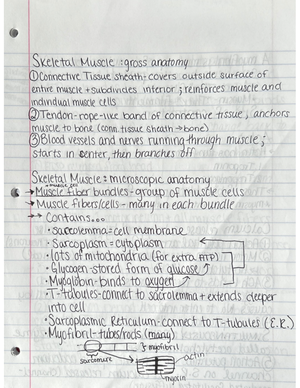 Skeletal Muscle: gross anatomy
① Connective Tissue sheath - covers outside surface of
entire muscle + subdivides interior; reinforces muscle and
individual muscle cells
② Tendon - rope-like band of connective tissue, anchors
muscle to bone (conn. tissue sheath → bone)
③ Blood vessels and nerves running through muscle;
starts in center, then branches off
Skeletal Muscle: microscopic anatomy
→ Muscle Fiber bundles - group of muscle cells
→ Muscle fibers/cells - many in each bundle
→ Contains...
• Sarcolemma = cell membrane
• Sarcoplasm = cytoplasm
• lots of mitochondria (for extra ATP)
• Glycogen - stored form of glucose
• Myoglobin - binds to oxygen
• T-tubules - connect to sacrolemma + extends deeper
into cell
• Sarcoplasmic Reticulum - connect to T-tubules (E.R.)
• Myofibril - tubes/rods (many)
} myofibril
sarcomere
actin
myosin